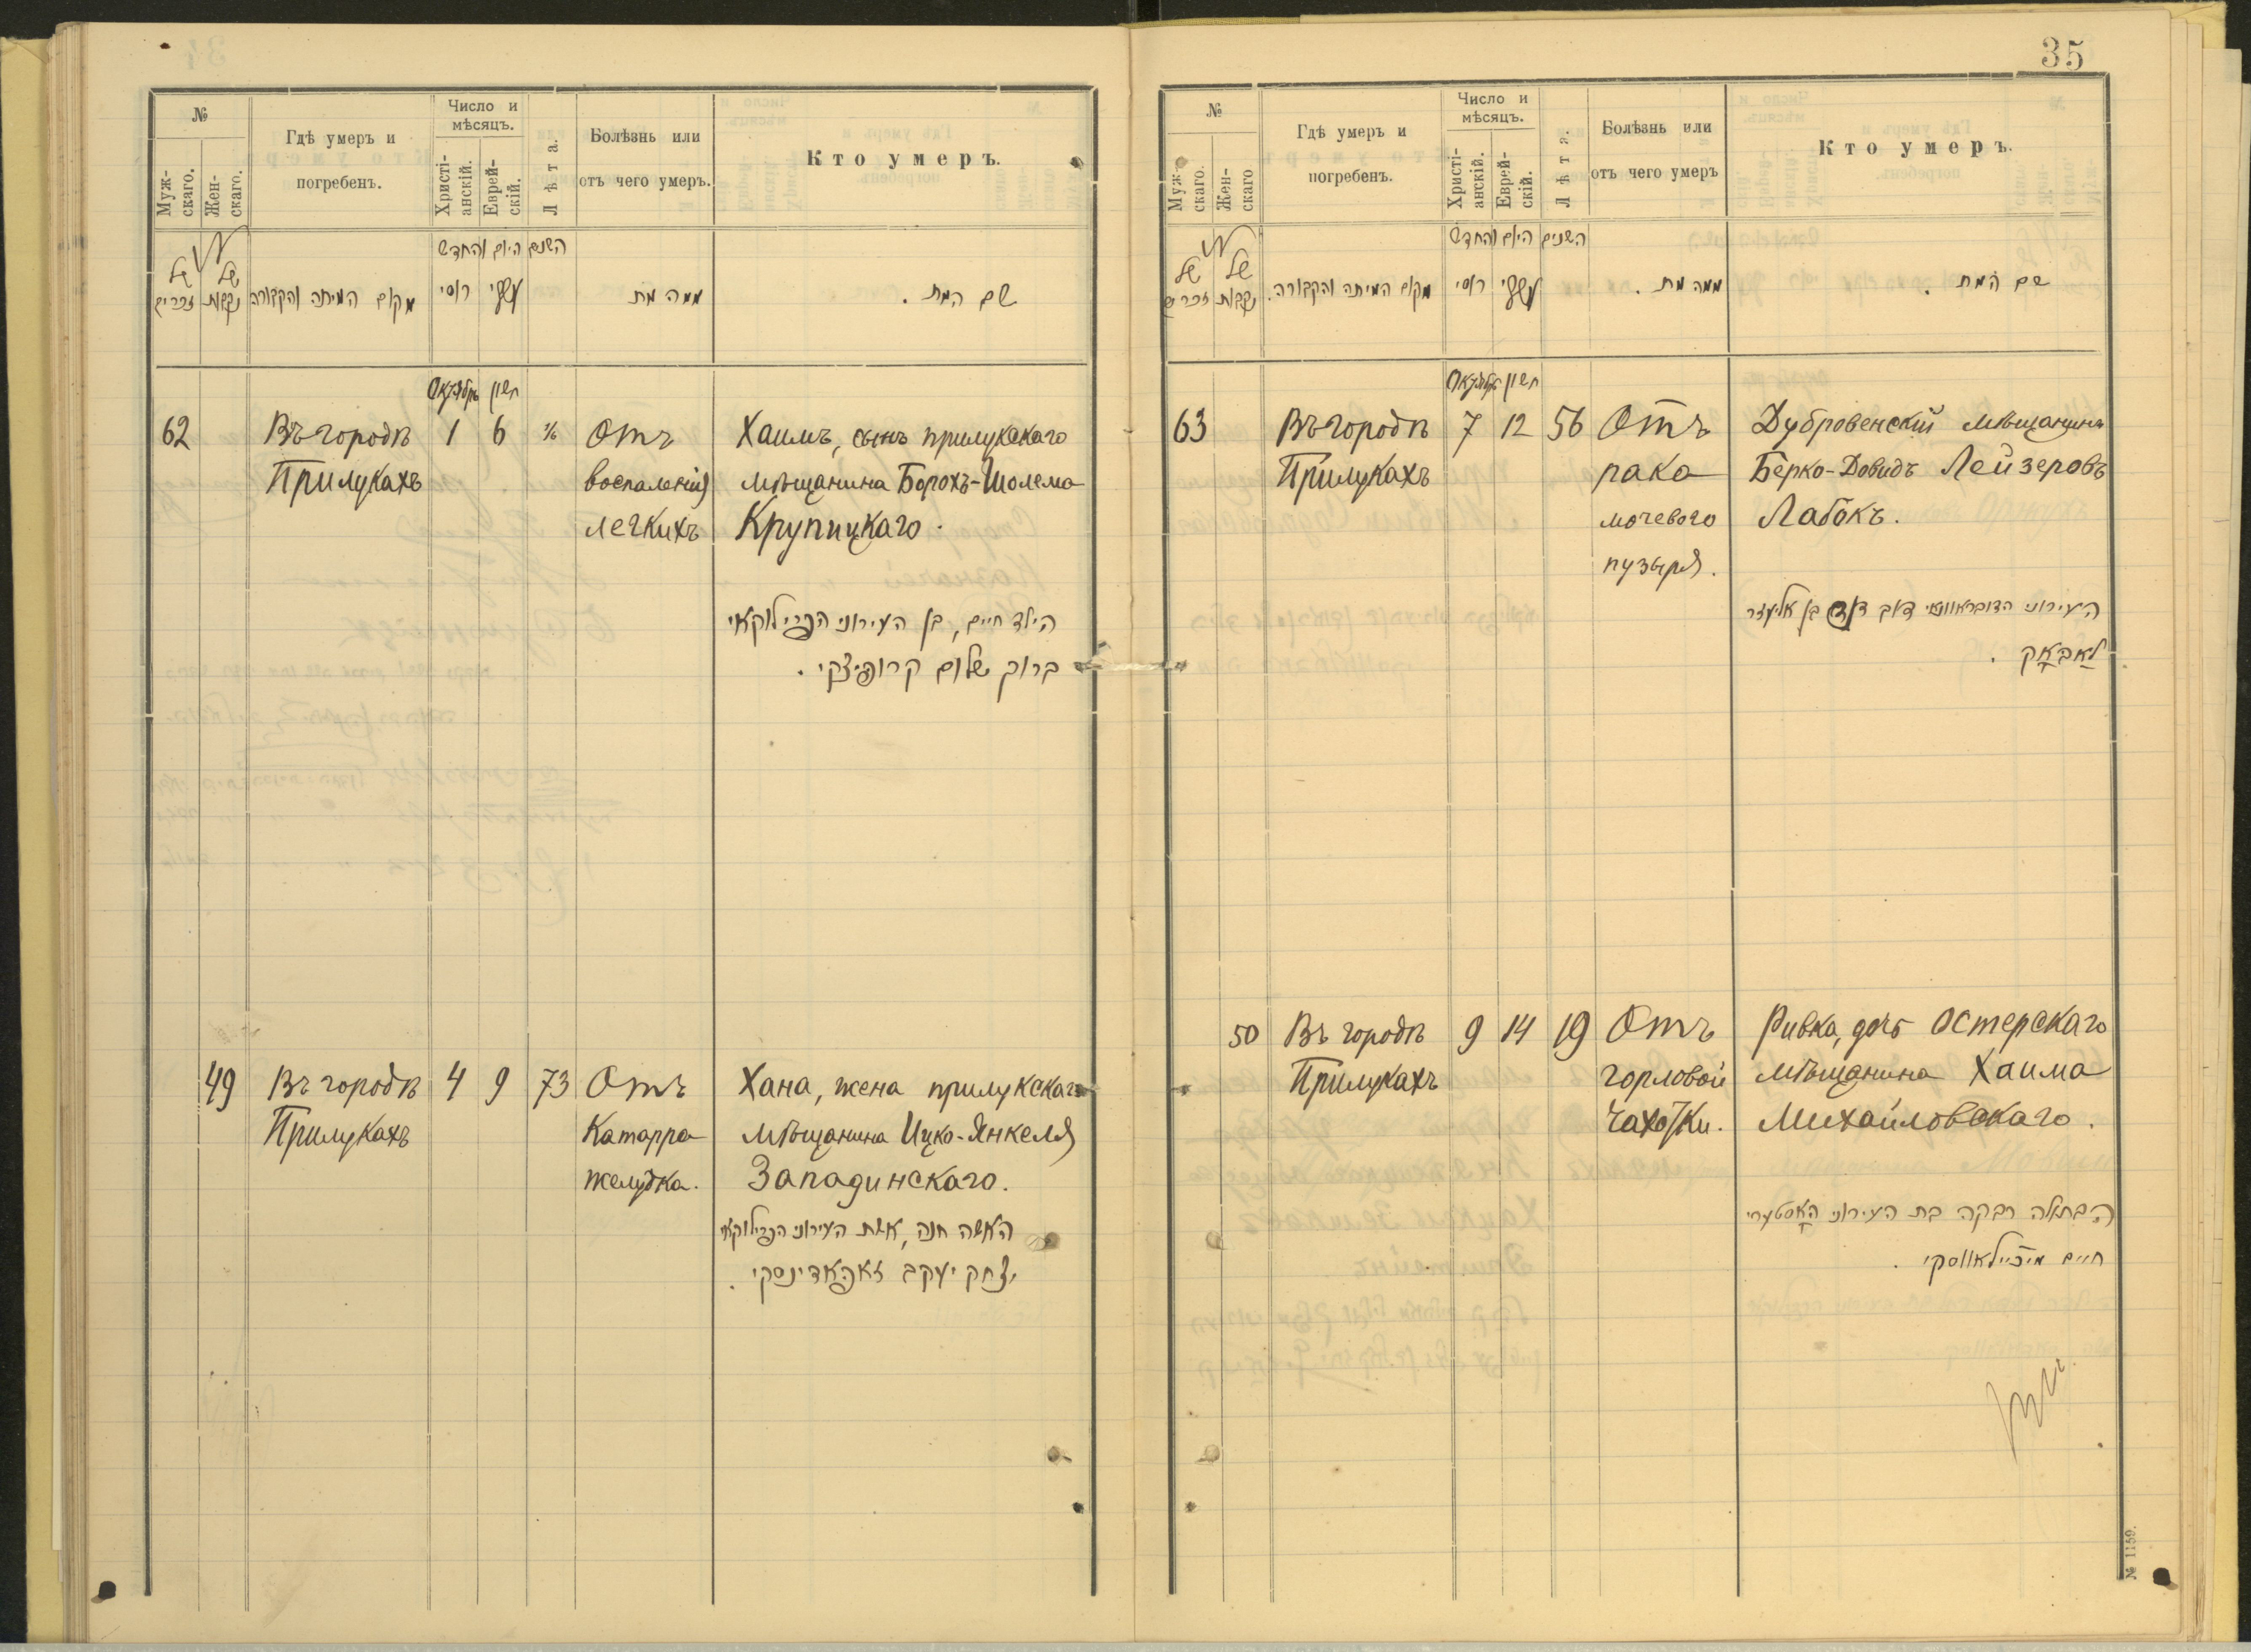 №
Муж-
скаго.
Жен-
скаго.
Гдѣ умеръ и
погребенъ.
Число и
мѣсяцъ.
Христі-
анскій.
Еврей-
скій.
Лѣта.
Болѣзнь или
отъ чего умеръ.
Кто умеръ.
של
זכרים
של
נקבות
מקום המיתה והקבורה
השנים היום והחדש
רוסי
ממה מת
שם המת.
Октябрь חשון
62 Въ городѣ 1 6 Отъ Хаимъ, сынъ прилукскаго
Прилукахъ воспаленія мѣщанина Борохъ-Шолема
легкихъ Крупицкаго.
הילד חיים, בן העירוני הפרילוקאי
ברוך שלום קרופיצקי.
49 Въ городѣ 4 9 73 Отъ Хана, жена прилукскаго
Прилукахъ Катарра мѣщанина Ицко-Янкеля
желудка. Западинскаго.
האשה חנה, אשת העירוני הפרילוקאי
יצחק יעקב זאפאדינסקי.
35
№
Муж-
скаго.
Жен-
скаго
Гдѣ умеръ и
погребенъ.
Число и
мѣсяцъ.
Христі-
анскій.
Еврей-
скій.
Лѣта.
Болѣзнь или
отъ чего умеръ
Кто умеръ.
של
זכרים
של
נקבות
מקום המיתה והקבורה.
השנים היום והחדש
רוסי
ממה מת.
שם המת.
Октябрь חשון
63 Въ городѣ 7 12 56 Отъ Дубровенскій мѣщанинъ
Прилукахъ рака Берко-Довидъ Лейзеровъ
мочеваго Лабокъ.
пузыря.
העירוני הדובראוונאי דוב דוד בן אליעזר
לאבאק.
50 Въ городѣ 9 14 19 Отъ Ривка, дочь Остерскаго
Прилукахъ горловой мѣщанина Хаима
чахотки. Михайловскаго.
הבתולה רבקה בת העירוני האסטערי
חיים מיכיילאווסקי.
№ 1159.